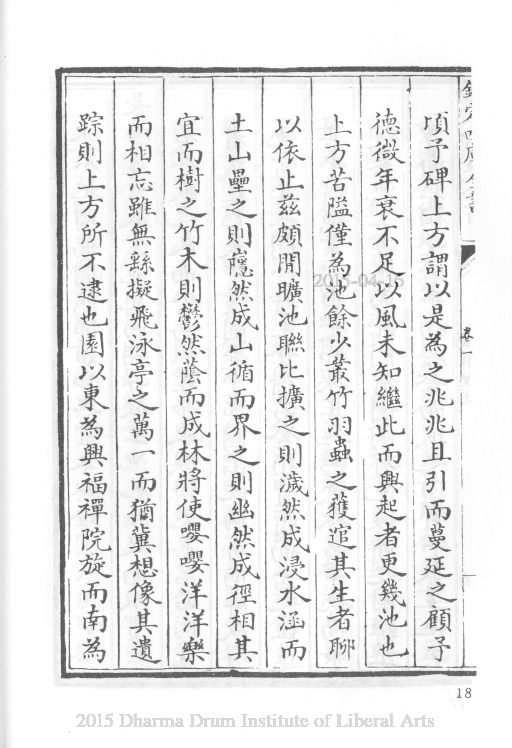 欽定四庫全書
卷一
頃予碑上方謂以是為之兆兆且引而蔓延之顧予
德微年衰不足以風未知繼此而興起者更幾池也
上方苦隘僅為池餘少叢竹羽蟲之獲逭其生者聊
以依止茲頗閒曠池聯比擴之則濊然成浸水涵而
土山壘之則巍然成山循而界之則幽然成徑相其
宜而樹之竹木則鬱然蔭而成林將使嚶嚶洋洋樂
而相忘雖無繇擬飛泳亭之萬一而猶冀想像其遺
踪則上方所不逮也園以東為興福禪院旋而南為
18
2015 Dharma Drum Institute of Liberal Arts